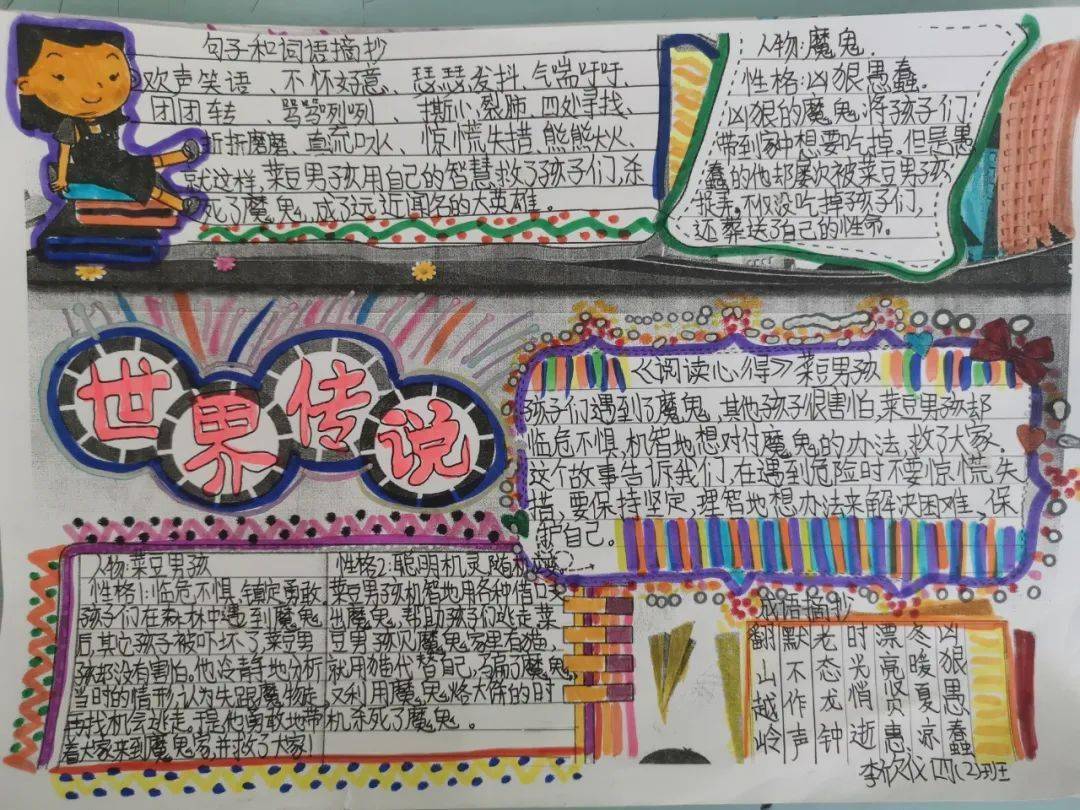 句子和词语摘抄
欢声笑语、不怀好意、瑟瑟发抖、气喘吁吁、
团团转、骂骂咧咧、撕心裂肺、四处寻找、
折折磨磨、直流口水、惊慌失措、熊熊大火
就这样,菜豆男孩用自己的智慧救了孩子们,杀
死了魔鬼,成了远近闻名的大英雄。
人物:魔鬼.
性格:凶狠愚蠢.
凶狠的魔鬼,将孩子们
带到家中想要吃掉。但是愚
蠢的他却屡次被菜豆男孩
捉弄。不仅没吃掉孩子们,
还葬送了自己的性命。
世界传说
《阅读心得》菜豆男孩
孩子们遇到了魔鬼,其他孩子很害怕,菜豆男孩却
临危不惧,机智地想对付魔鬼的办法,救了大家.
这个故事告诉我们,在遇到危险时不要惊慌失
措,要保持坚定,理智地想办法来解决困难、保
护自己。
人物:菜豆男孩
性格1:临危不惧,镇定勇敢
孩子们在森林中遇到魔鬼
后,其它孩子被吓坏了,菜豆男
孩却没有害怕。他冷静地分析
当时的情形,认为先跟魔鬼走,
再找机会逃走。于是他勇敢地带
着大家来到魔鬼家,并救了大家!
性格2:聪明机灵,随机应变
菜豆男孩机智地用各种借口支
出魔鬼,帮助孩子们逃走菜
豆男孩见魔鬼家里有猫,
就用猫代替自己,骗了魔鬼,
又利用魔鬼烙大饼的时
机杀死了魔鬼。
成语摘抄
翻山越岭
默不作声
老态龙钟
时光悄逝
漂亮贤惠
冬暖夏凉
凶狠愚蠢
四(2)班